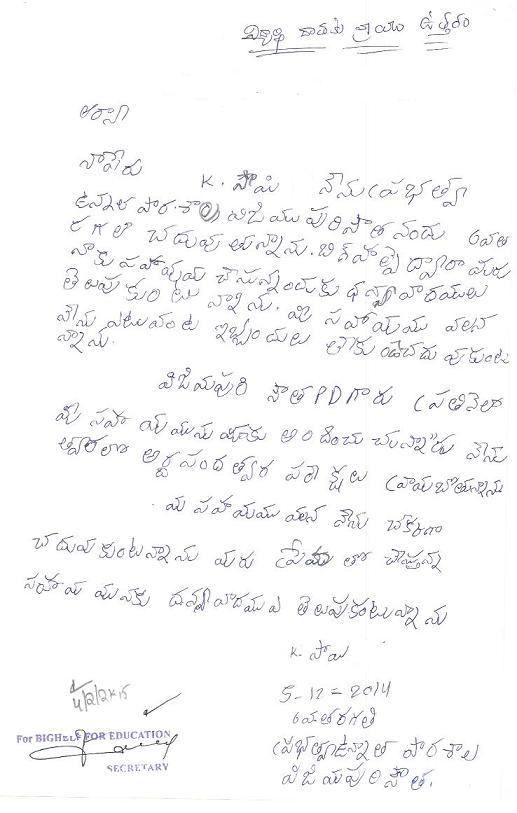 విద్యార్థి దాతకు వ్రాయు ఉత్తరం
నాపేరు
K. సాయి నేను ప్రభత్వ
ఉన్నత పారశాల విజయపురిసౌత నందు 6వత
రగతి చదువు తున్నాను. బిగ్ హెల్ప్ ద్వారా మీరు
నాకు సహాయం చేసున్నందుకు ధన్యవాదములు
తెలుపు కుంటున్నాను. మీ సహాయము వలన
నేను ఎటువంటి ఇబ్బందులు లేకుండచదువుకుంటు
న్నాను.
విజయపురి సౌత PD గారు ప్రతినెలా
మీ సహాయమును మాకు అందించు చున్నారు నేను
అర్ధసంవత్సర పరీక్షలు వ్రాయబోతున్నాను
మీ సహాయము వలన నేను చక్కగా
చదువుకుంటన్నాను మీరు ప్రేమతో చేస్తున్న
సహాయమునకు దన్యవాదములు తెలుపుకుంటున్నాను
K. సాయి
5-12-2014
6వతరగతి
ప్రభత్వఉన్నత పారశాల
విజయపురిసౌత.
4/2/2K15
For BIGHELP FOR EDUCATION
SECRETARY